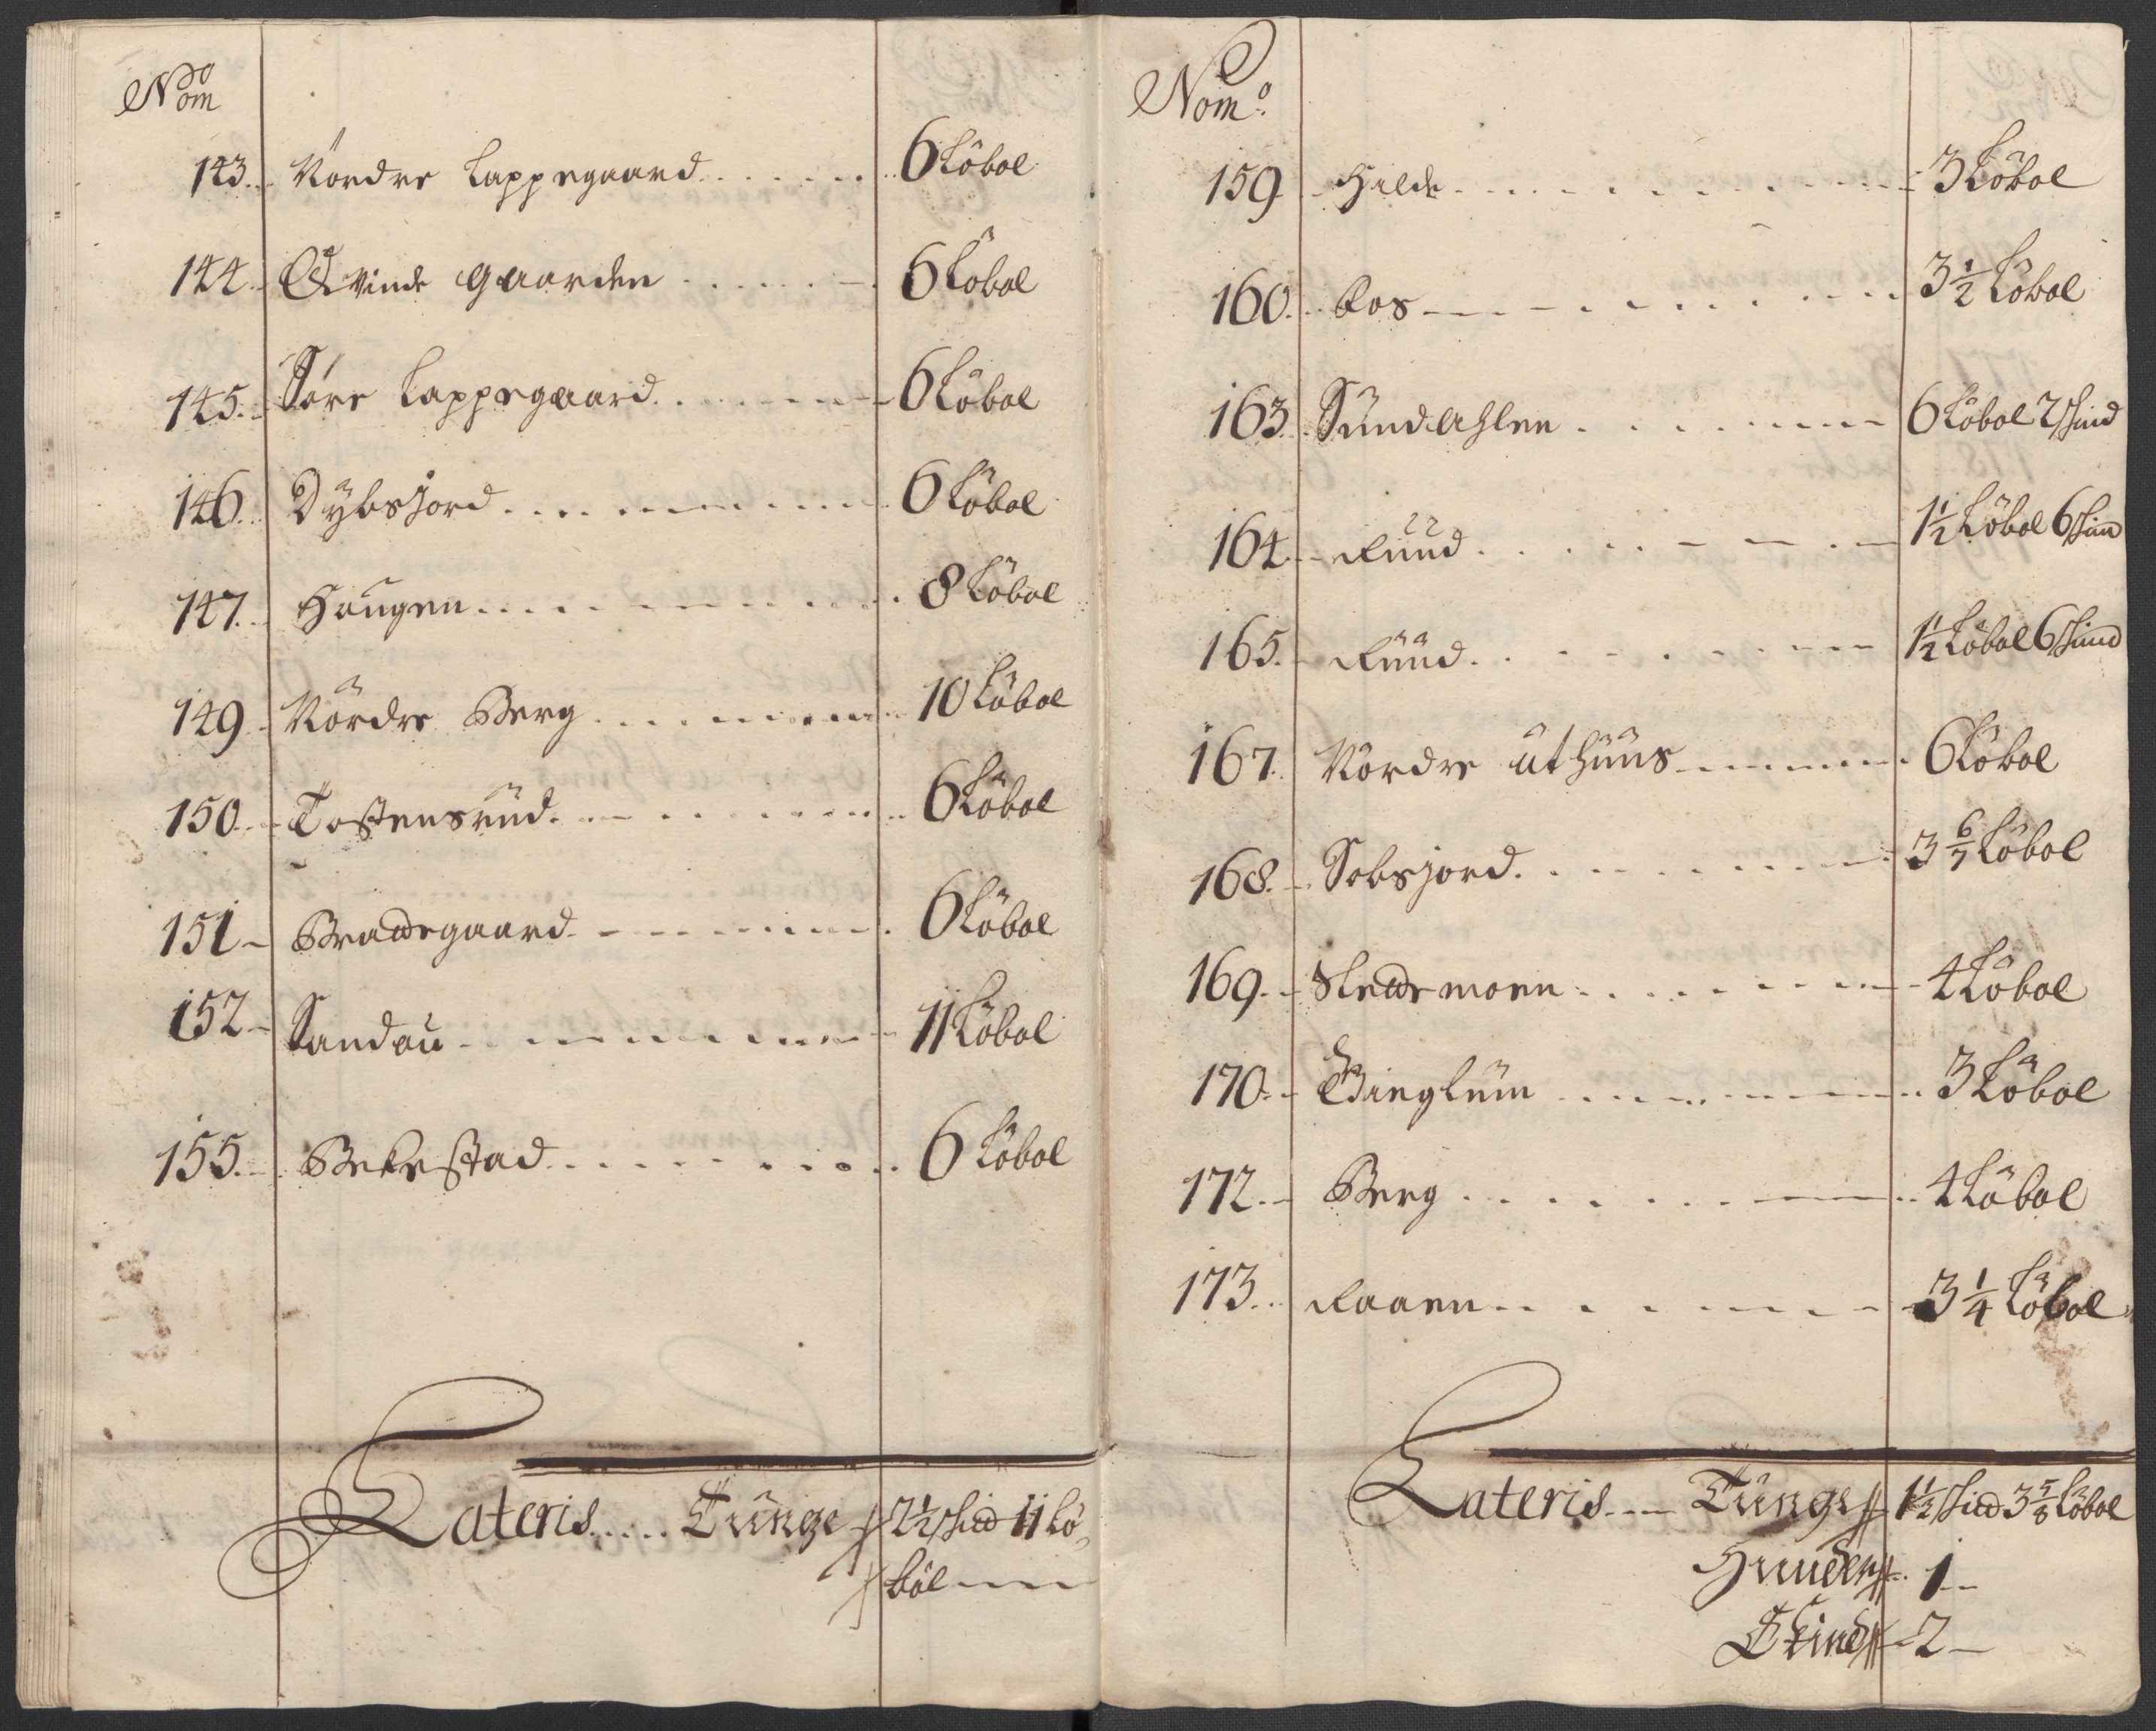 Nom
143. Nordre Lappegaard 6 Löbol
144. Øvinde Gaarden 6 Löbol
145. Søre Lappegaard 6 Löbol
146. Dybsjord 6 Löbol
147. Haugen 8 Löbol
149. Nordre Berg 10 Löbol
150. Tostensrud 6 Löbol
151 Braategaard 6 Löbol
152 Sandau 11 Löbol
155. Bekestad 6 Löbol
Lateris Tunge 2½ 11 Lö-
böl
Nomo
159 Hilde 3 Löbol
160. Aos 3½ Löbol
163. Sundahlen 6 Löbol 2 skind
164. Ruud 1½ Löbol 6 skind
165. Ruud 1½ Löbol 6 skind
167. Nordre Uthuus 6 Löbol
168. Sebsjord 3 6/7 Löbol
169. Slettemoen 4 Löbol
170. Tinglum 3 Löbol
172. Berg 4 Löbol
173. Raaen 3¼ Löbol
Lateris Tunge 1½ 3 5/8 Löbol
Huuder 1
Skind 2